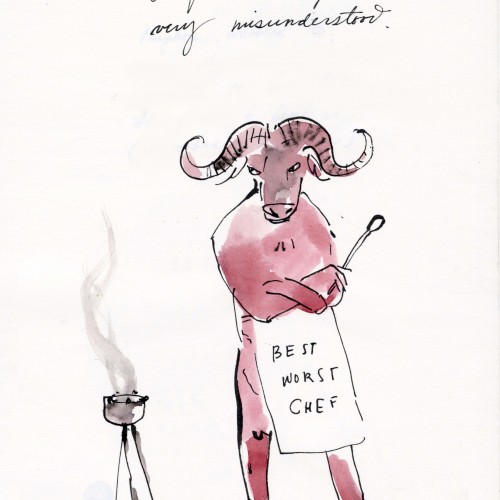 very misunderstood.
BEST
WORST
CHEF